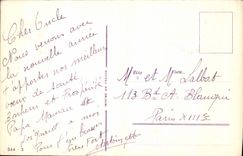 Cher Oncle
Nous venons avec
la nouvelle année
apporter nos meilleurs
vœux de santé
Bonheur et Prospérité
Papa Maman et
Mons et Mme Lalbat
113 Bd A Blanqui
Paris XIIIe
344-3